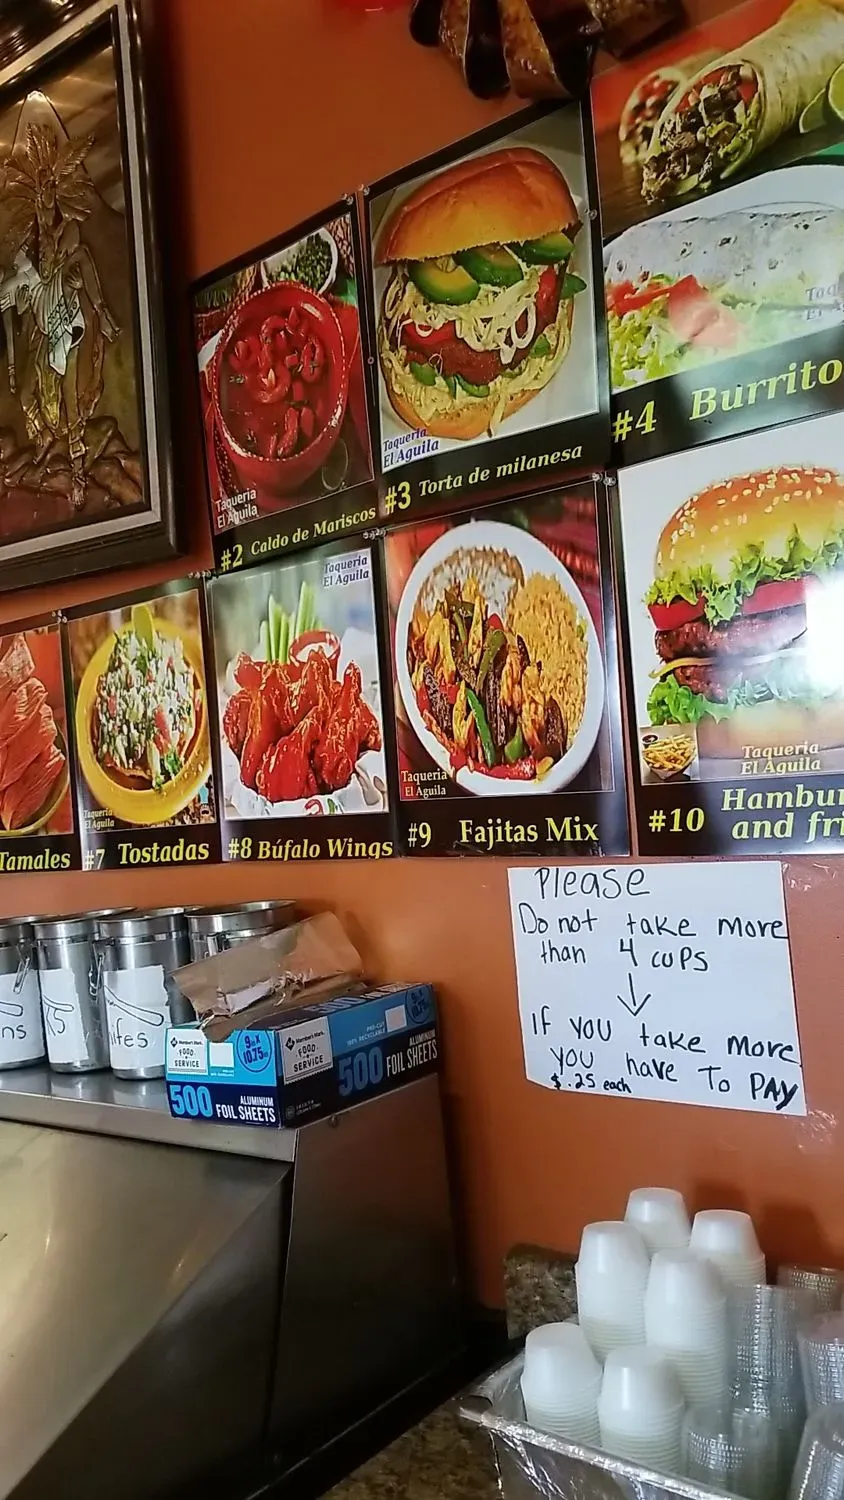 Taqueria
El Aguila
#2 Caldo de Mariscos
Taqueria
El Aguila
#3 Torta de milanesa
#4 Burrito
Tamales
Taqueria
El Aguila
#7 Tostadas
Taqueria
El Aguila
#8 Búfalo Wings
Taqueria
El Aguila
#9 Fajitas Mix
Taqueria
El Aguila
#10 Hambur
and fri
Please
Do not take more
than 4 cups
If you take more
you have To PAY
$.25 each
Member's Mark
FOOD
SERVICE
9 IN X
10.75 IN
500 ALUMINUM
FOIL SHEETS
Member's Mark
FOOD
SERVICE
500 ALUMINUM
FOIL SHEETS